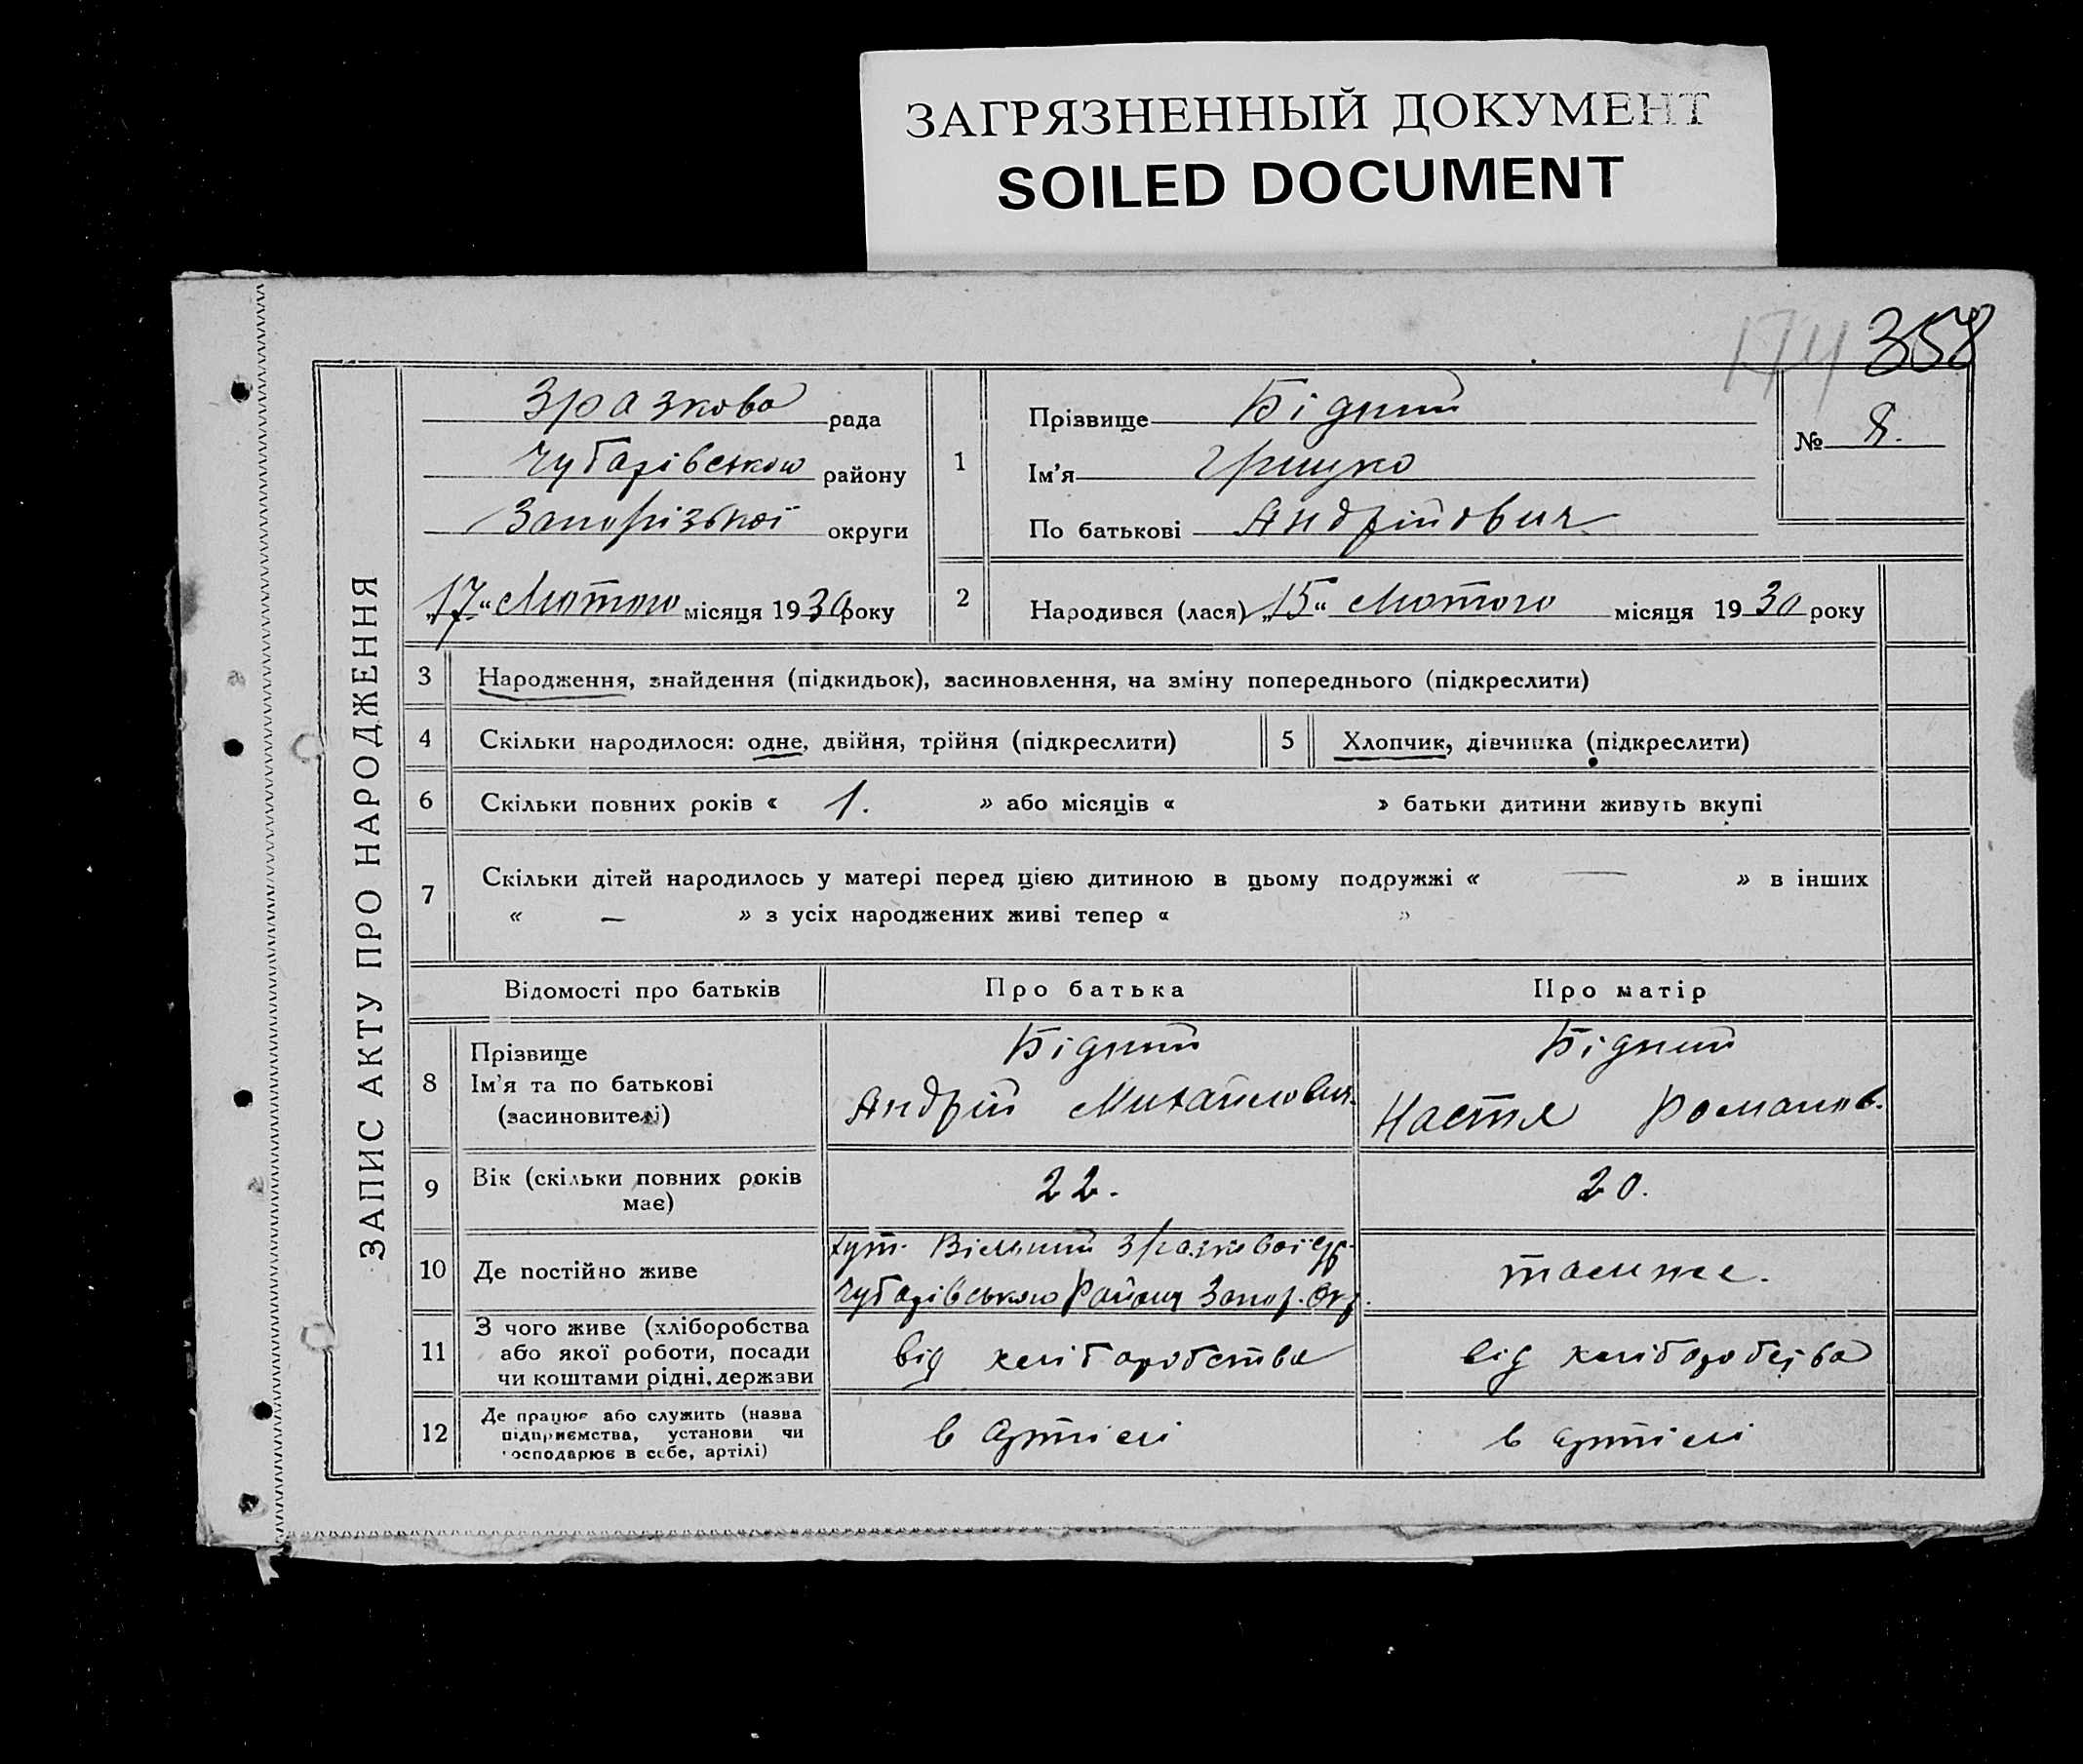 ЗАГРЯЗНЕННЫЙ ДОКУМЕНТ
SOILED DOCUMENT
174 358
ЗАПИС АКТУ ПРО НАРОДЖЕННЯ
Зразкова рада
Чубарівського району
Запорізької округи
„17“ Лютого місяця 1930 року
1
Прізвище Бідний
Ім'я Грицко
По батькові Андрійович
№ 8.
2
Народився (лася) „15“ Лютого місяця 1930 року
3 Народження, знайдення (підкидьок), засиновлення, на зміну попереднього (підкреслити)
4 Скільки народилося: одне, двійня, трійня (підкреслити) 5 Хлопчик, дівчинка (підкреслити)
6 Скільки повних років « 1. » або місяців « » батьки дитини живуть вкупі
7 Скільки дітей народилось у матері перед цією дитиною в цьому подружжі « — » в інших
« — » з усіх народжених живі тепер « »
Відомості про батьків Про батька Про матір
8 Прізвище
Ім'я та по батькові
(засиновителі)
Бідний
Андрій Михайлович.
Бідний
Настя Романов.
9 Вік (скільки повних років
має)
22.
20.
10 Де постійно живе
хут. Вільний Зразкової с/р.
Чубарівського Району Запор. Окр.
10 також
11 З чого живе (хліборобства
або якої роботи, посади
чи коштами рідні, держави
від хліборобства
від хліборобства
12 Де працює або служить (назва
підприємства, установи чи
господарює в себе, артілі)
в артілі
в артілі